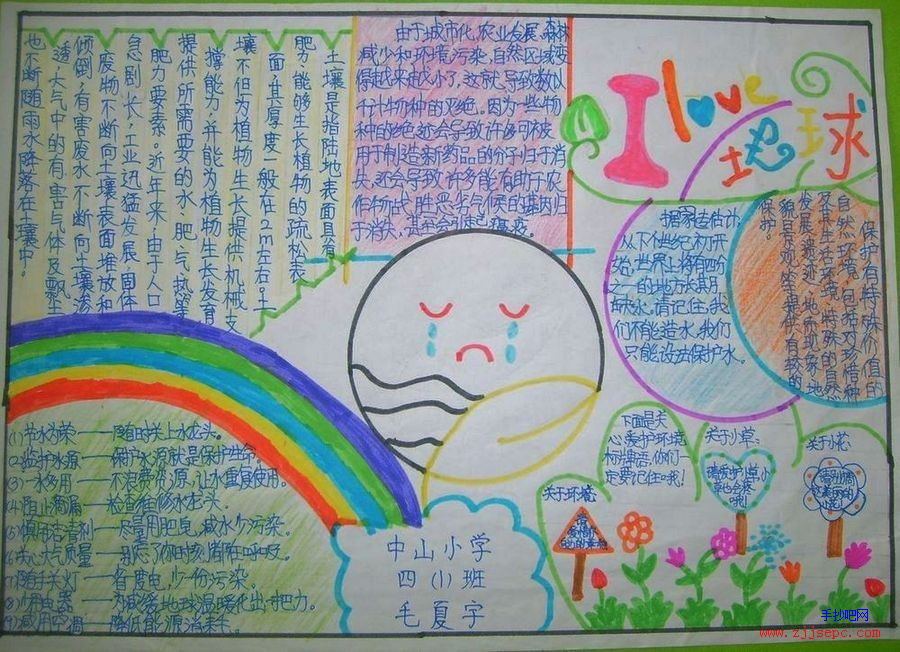 I love 地球
由于城市化,农业发展,森林
减少和环境污染,自然区域变
得越来越小了,这就导致数以
千计物种的灭绝。因为一些物
种的绝迹会导致许多可被
用于制造新药品的分子归于消
失,还会导致许多能有助于农
作物战胜恶劣气候的基因归
于消失,甚至会引起
土壤是指陆地表面具有
肥力,能够生长植物的疏松表
面,其厚度一般在2m左右。土
壤不但为植物生长提供机械支
撑能力,并能为植物生长发育
提供所需要的水、肥、气、热等
肥力要素。近年来,由于人口
急剧长,工业迅猛发展,固体
废物不断向土壤表面堆放和
倾倒,有害废水不断向土壤渗
透,大气中的有害气体及飘尘
也不断随雨水降落在土壤中。
据家去估计,
从下个世纪初开
始,世界上将有四份
之一的地方长其月
缺水。请记住,我
们不能造水,我们
只能设法保护水。
保护有特殊价值的
自然环境,包括对珍惜物种
及其生活环境、特殊的自然
发展遗迹、地质现象、地
貌景观等提供有效的
保护。
(1)节水为荣——随时关上水龙头。
(2)监护水源——保护水源就是保护生命。
(3)一水多用——不浪费资源,让水重复使用。
(4)阻止滴漏——检查维修水龙头。
(5)慎用清洁剂——尽量用肥皂,减水少污染。
(6)关心大气质量——别忘了你时刻都在呼吸。
(7)随手关灯——省度电,少份污染。
(8)少用电器——为减缓地球温暖化出一把力。
(9)减用空调——降低能源消耗。
中山小学
四(1)班
毛夏字
下面是关
心、爱护环境
的牌害,你们一
定要记住哦!
关于环境:
关于小草:
请爱护小草,小
关于小花:
手抄吧网
www.zjjsepc.com